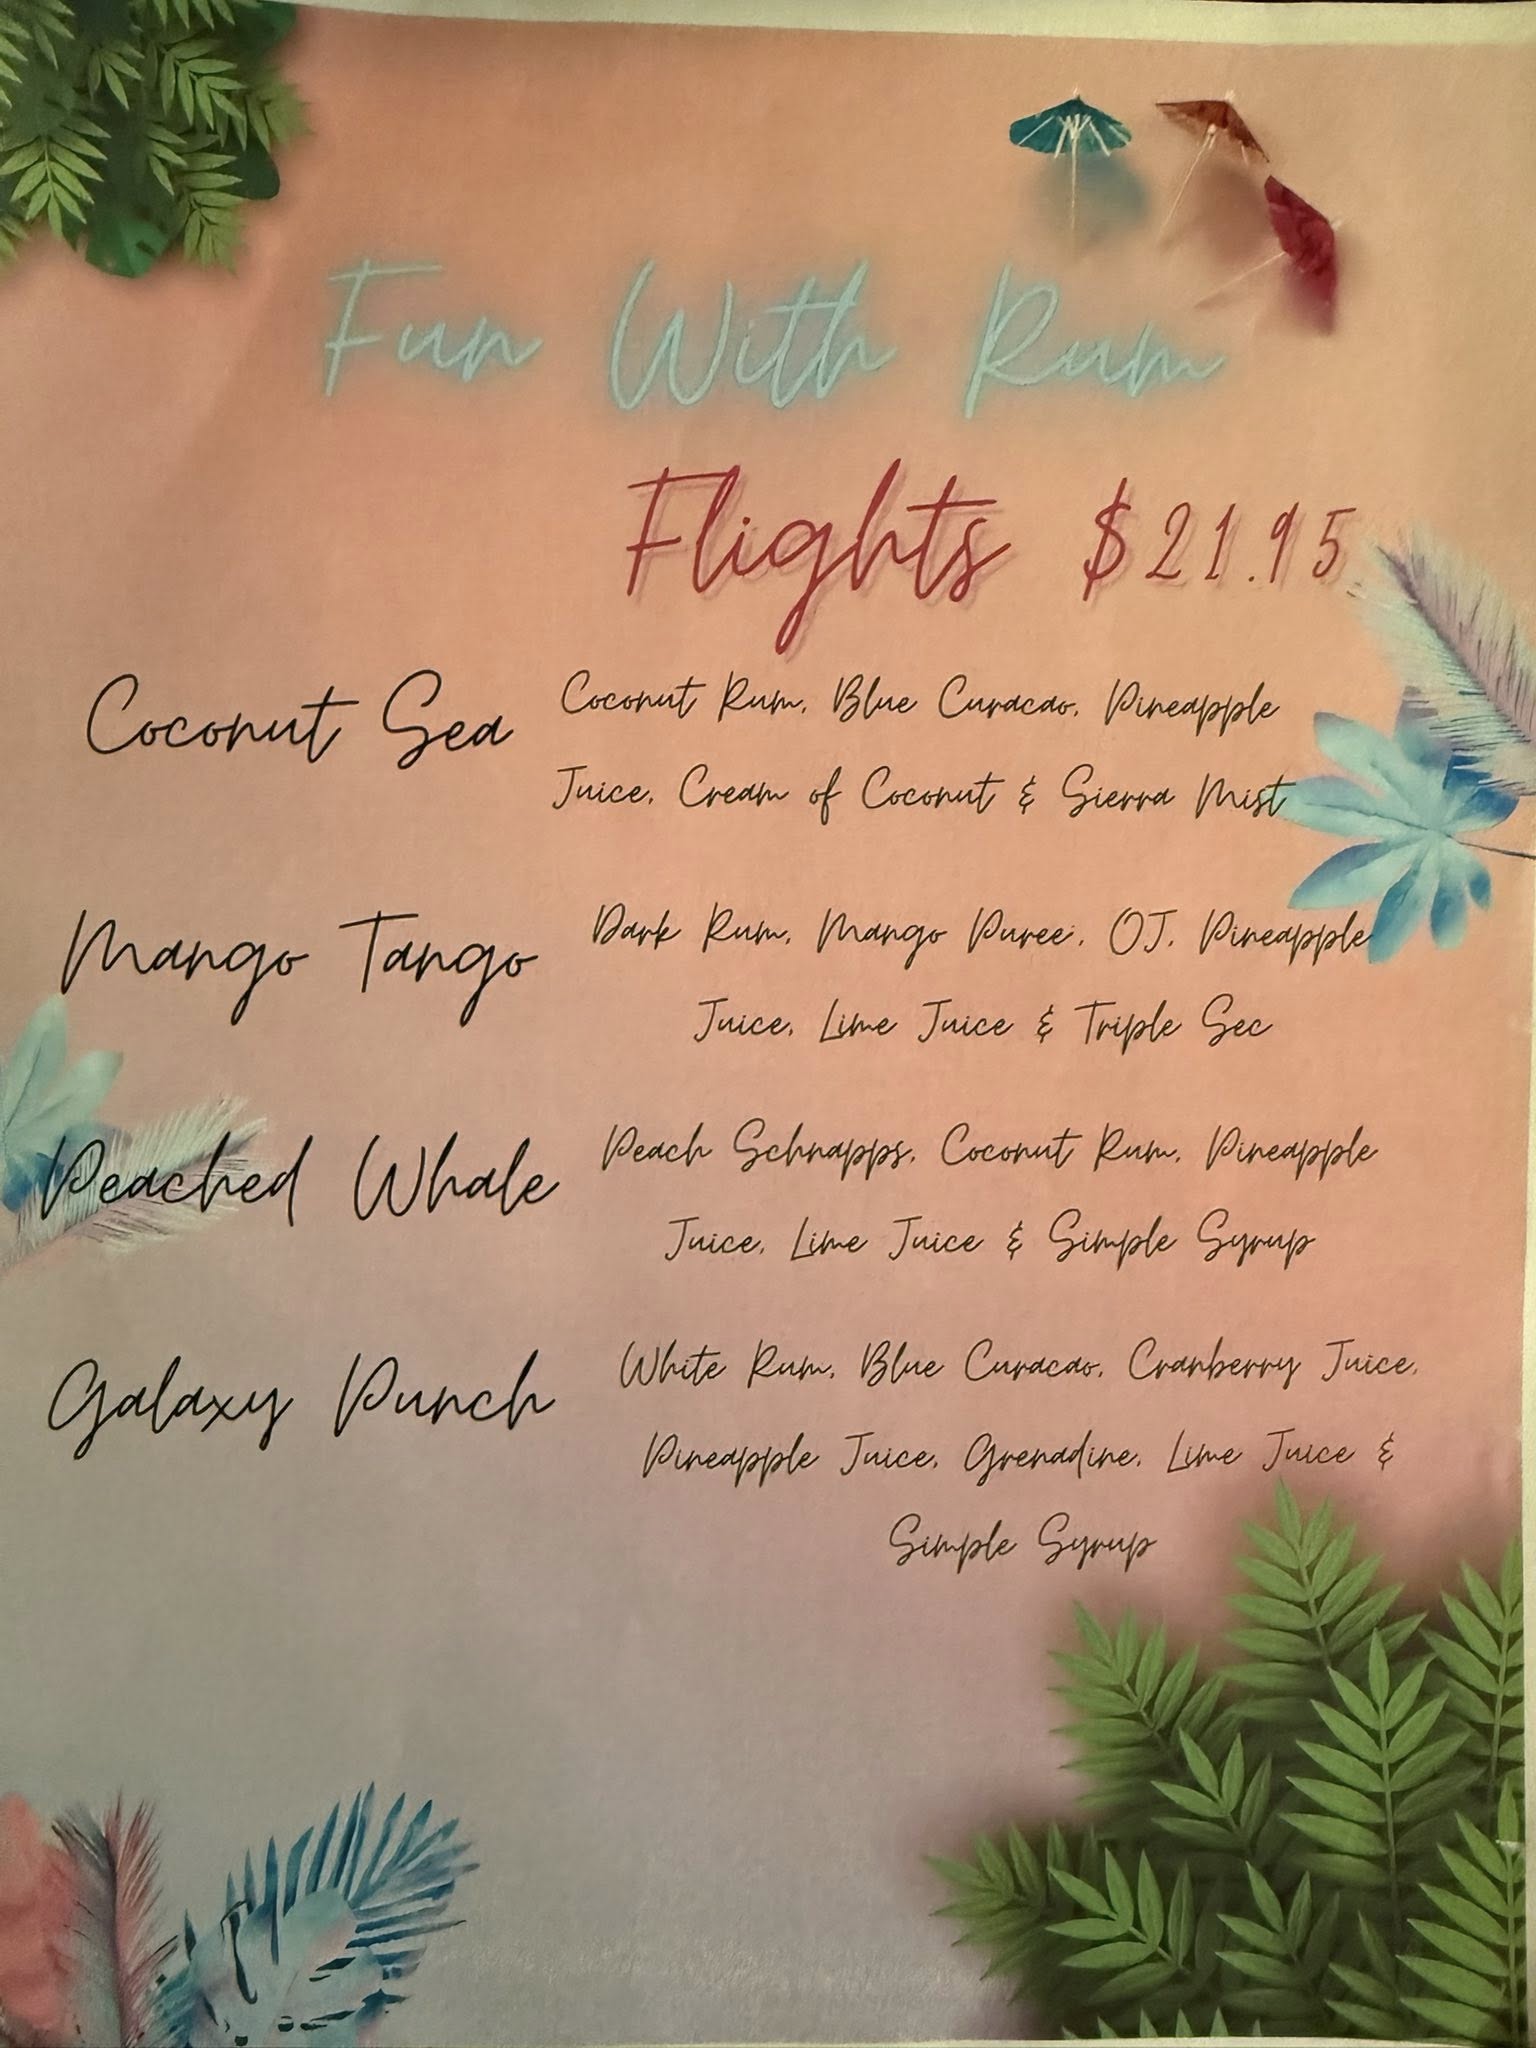 Fun With Rum
Flights $21.95
Coconut Sea
Coconut Rum, Blue Curacao, Pineapple
Juice, Cream of Coconut & Sierra Mist
Mango Tango
Dark Rum, Mango Puree, OJ, Pineapple
Juice, Lime Juice & Triple Sec
Peached Whale
Peach Schnapps, Coconut Rum, Pineapple
Juice, Lime Juice & Simple Syrup
Galaxy Punch
White Rum, Blue Curacao, Cranberry Juice,
Pineapple Juice, Grenadine, Lime Juice &
Simple Syrup